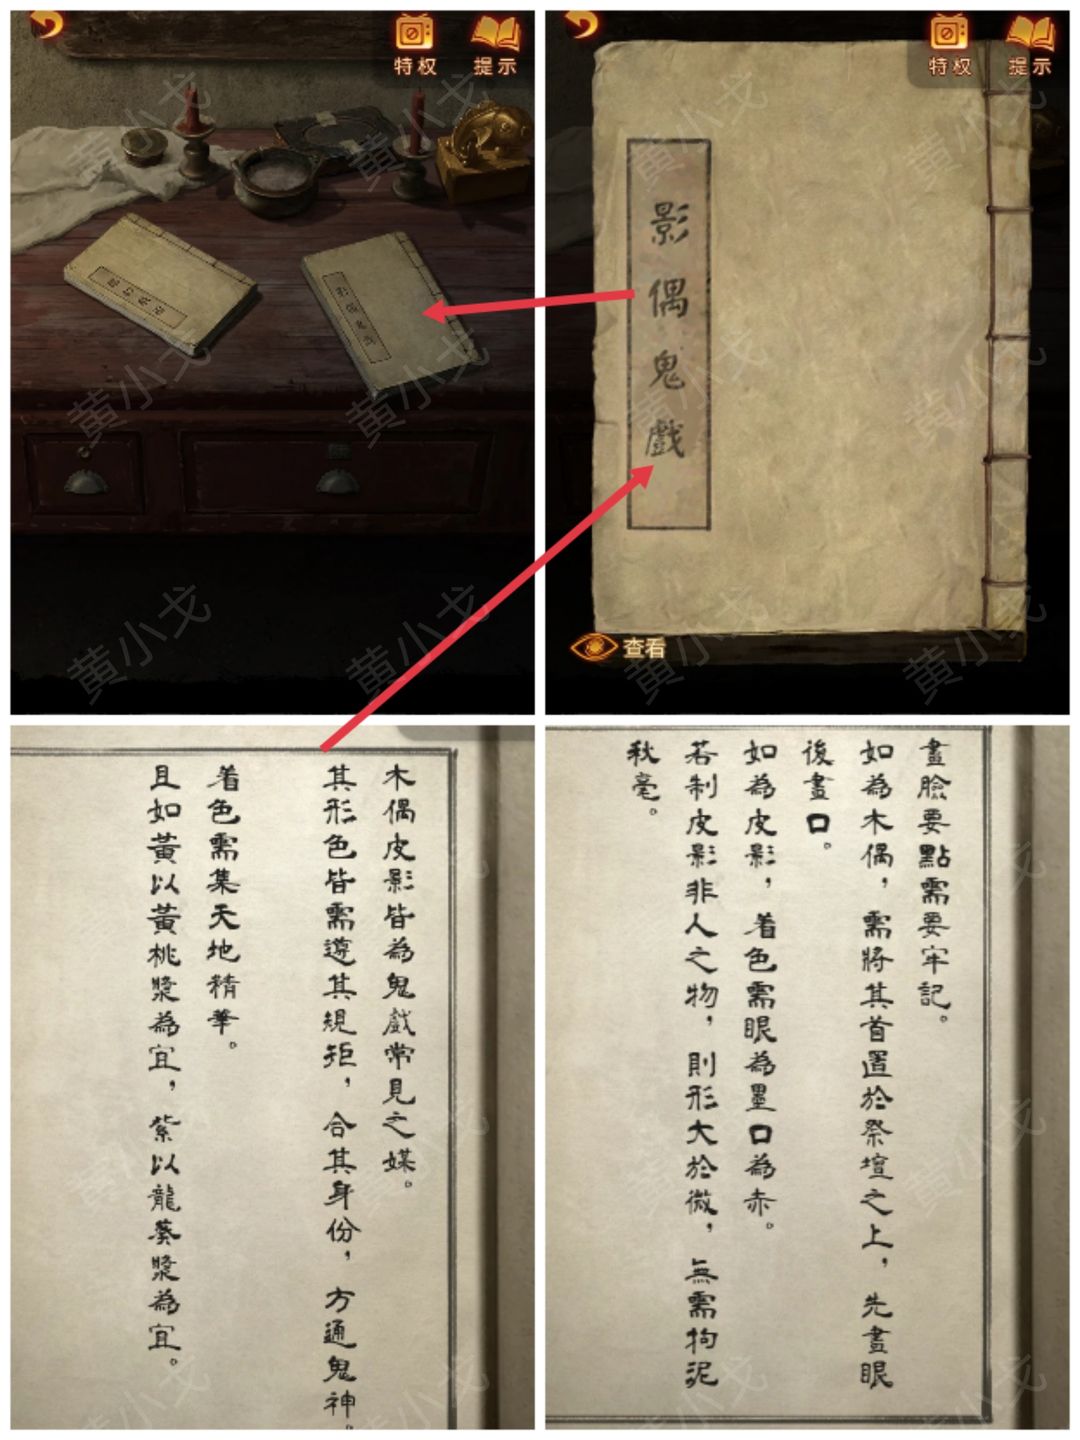 特权
提示
影偶鬼戲
特权
提示
影偶鬼戲
查看
木偶皮影皆為鬼戲常見之媒。
其形色皆需遵其規矩，合其身份，方通鬼神。
着色需集天地精華。
且如黃以黃桃漿為宜，紫以龍葵漿為宜。
畫臉要點需要牢記。
如為木偶，需將其首置於祭壇之上，先畫眼
後畫口。
如為皮影，着色需眼為墨口為赤。
若制皮影非人之物，則形大於微，無需拘泥
秋毫。
黄小戈